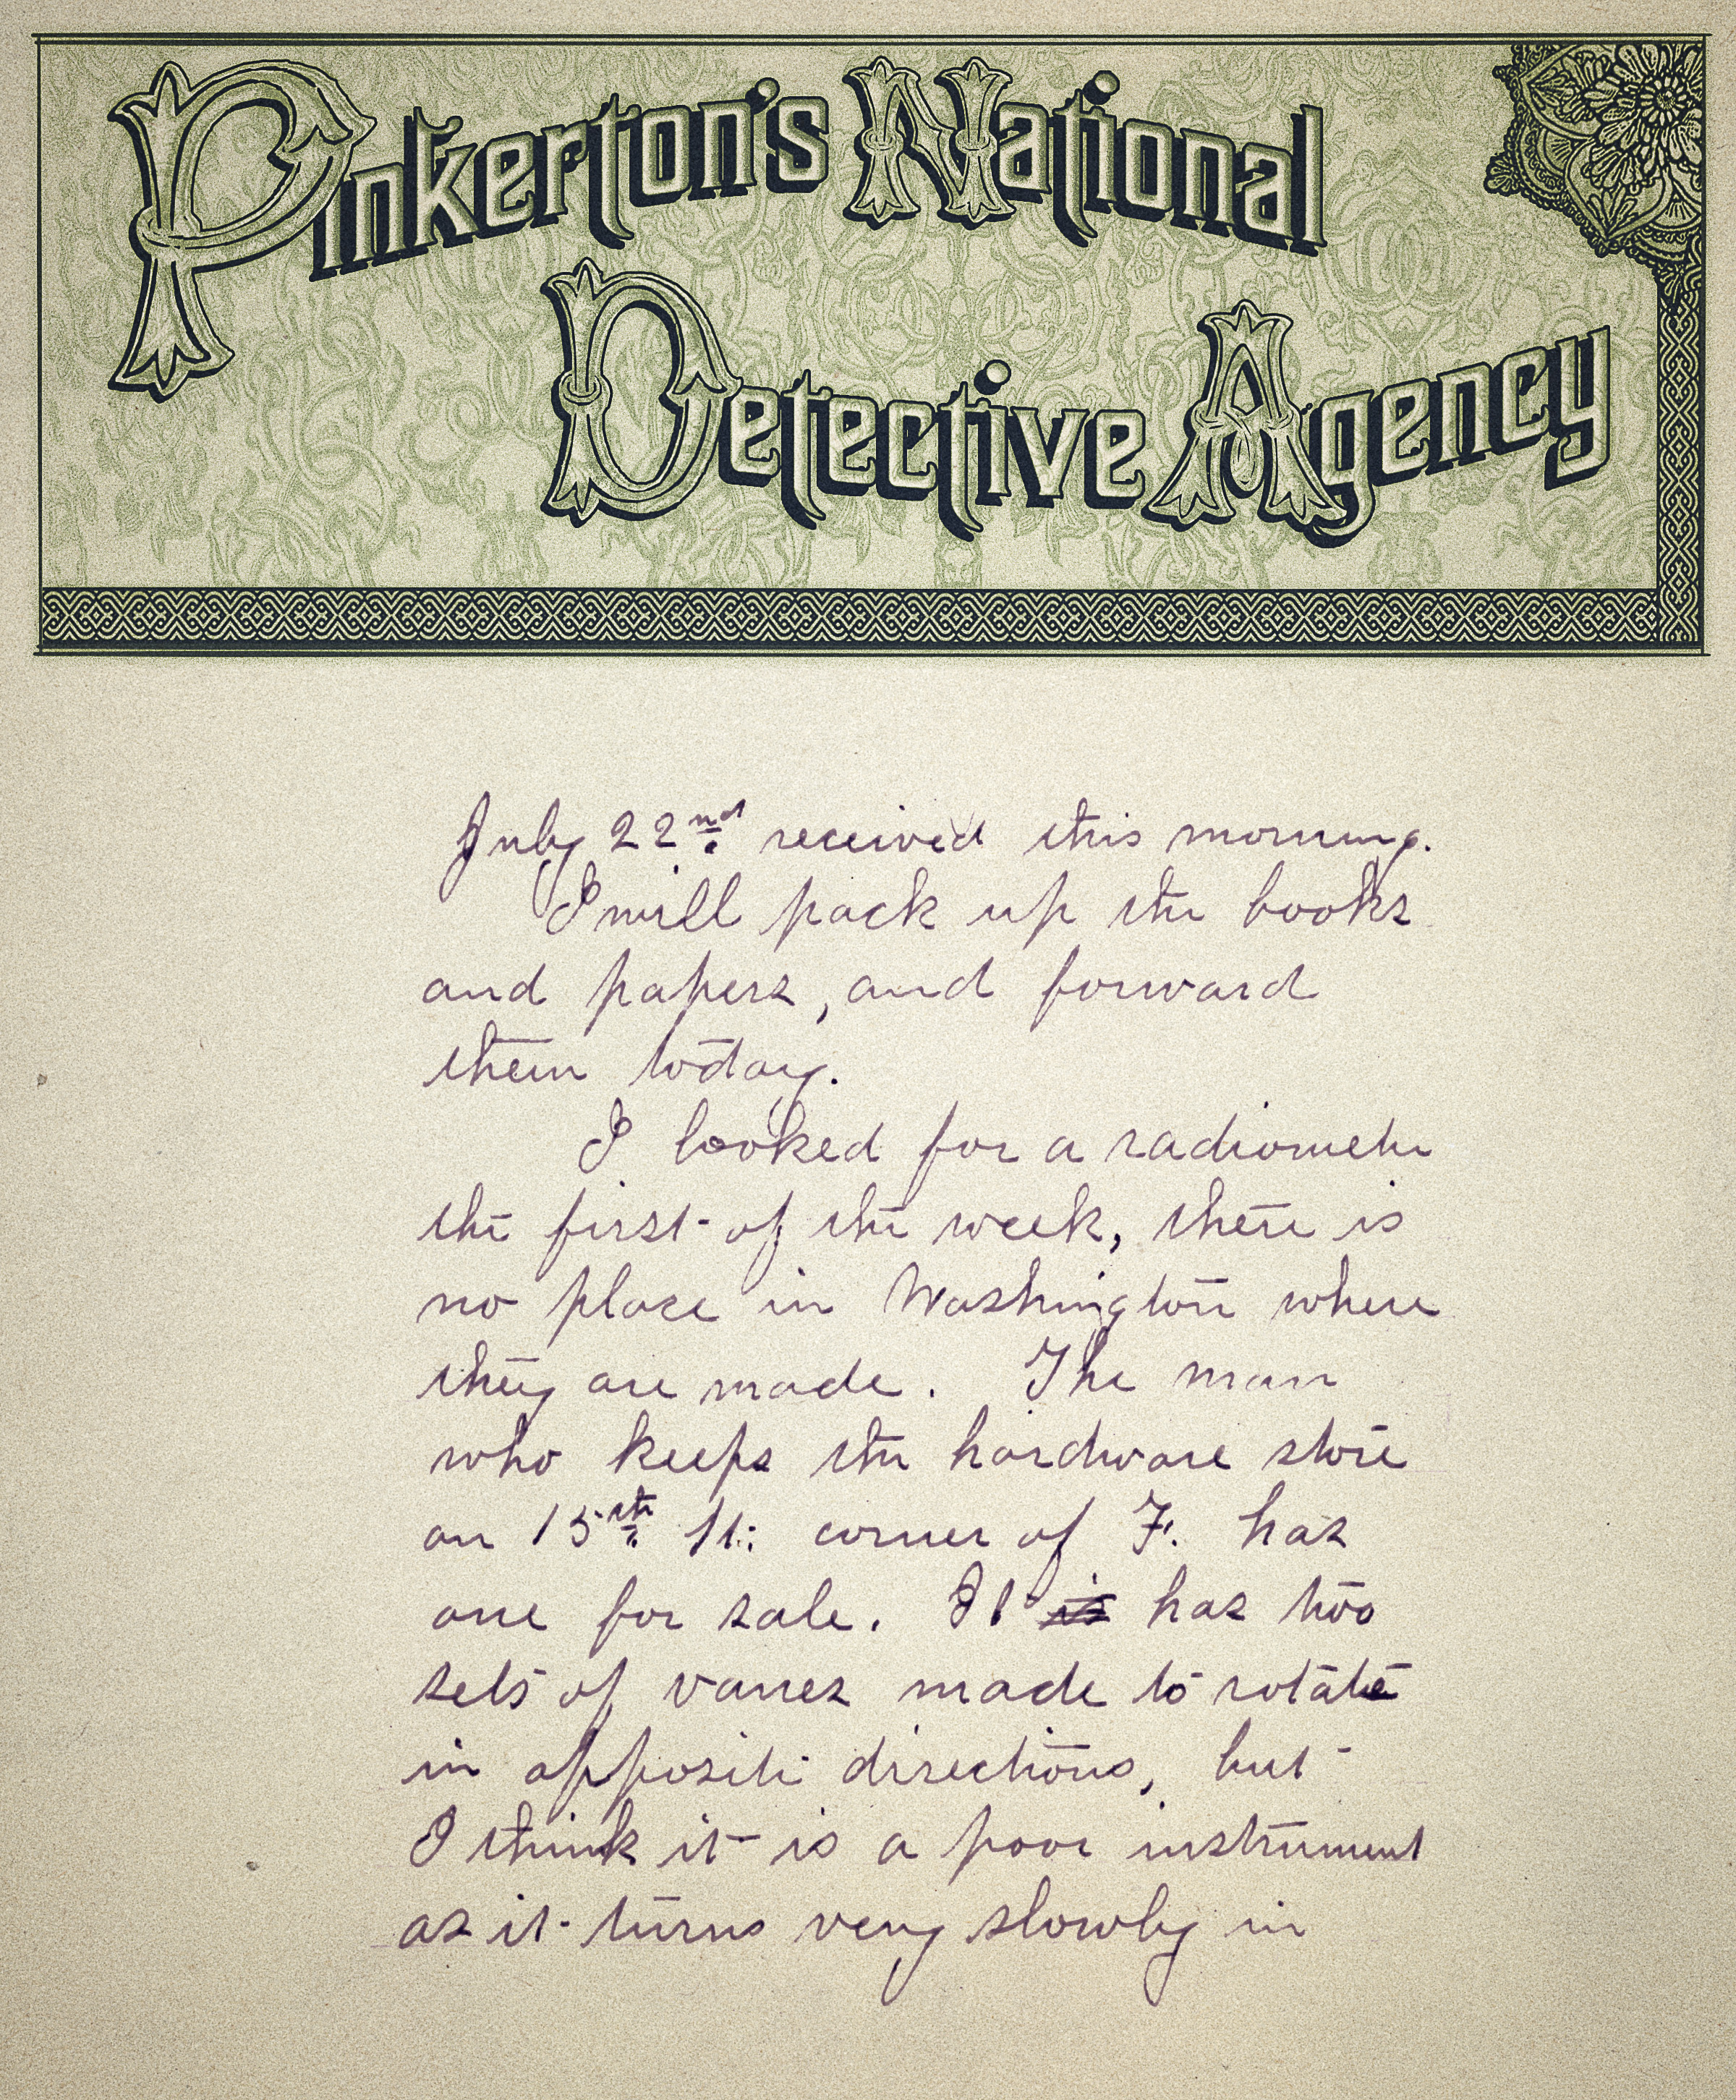 Pinkerton's National
Detective Agency
July 22nd received this morning.
I will pack up the books
and papers, and forward
them today.
I looked for a radiometer
the first of the week, there is
no place in Washington where
they are made. The man
who keeps the hardware store
on 15th St. corner of F. has
one for sale. It is has two
sets of vanes made to rotate
in opposite directions, but
I think it is a poor instrument
as it turns very slowly in